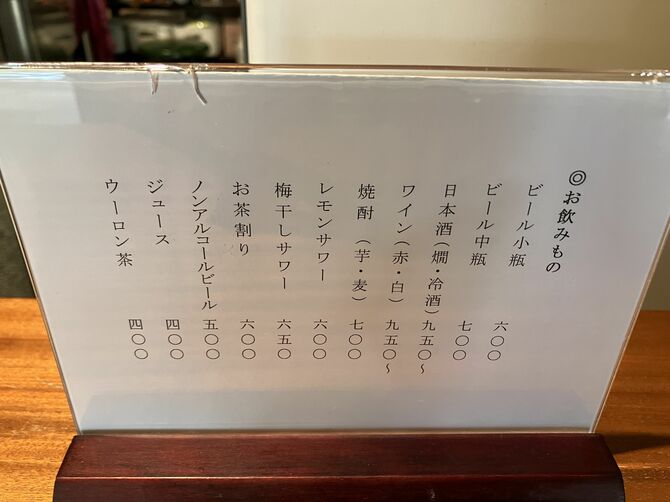 ◎お飲みもの
ビール小瓶 六〇〇
ビール中瓶 七〇〇
日本酒(燗・冷酒) 九五〇〜
ワイン(赤・白) 九五〇〜
焼酎(芋・麦) 七〇〇
レモンサワー 六〇〇
梅干しサワー 六五〇
お茶割り 六〇〇
ノンアルコールビール 五〇〇
ジュース 四〇〇
ウーロン茶 四〇〇